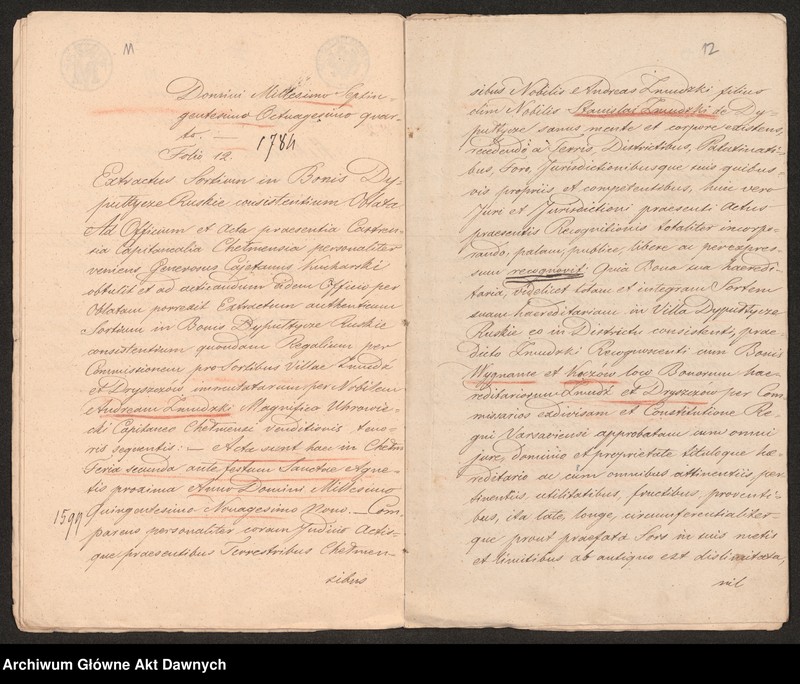 M
Domini Millesimo Septin-
gentesimo Octuagesimo quar-
to. —
1784
Folio 12.
Extractus Sortium in Bonis Dy-
pułtycze Ruskie consistentium Oblata
Ad Officium et Acta praesentia Castren-
sia Capitanealia Chełmensia personaliter
veniens Generosus Cajetanus Kucharski
obtulit et ad acticandum eidem Officio per
Oblatam porrexit Extractum authenticum
Sortium in Bonis Dypułtycze Ruskie
consistentium quondam Regalium per
Commissionem pro Sortibus Villae Żmudź
et Dryszczów immutatarum per Nobilem
Andream Żmudzki Magnifico Uhrowie-
cki Capitaneo Chełmensi venditionis teno-
ris sequentis: — Acta sient haec in Chełm
Feria secunda ante festum Sanctae Agne-
tis proxima Anno Domini Millesimo
Quingentesimo Nonagesimo Nono. — Com-
1599
parens personaliter coram Judicio Actis-
que praesentibus Terrestribus Chełmen-
sibus
12
sibus Nobilis Andreas Żmudzki filius
olim Nobilis Stanislai Żmudzki de Dy-
pułtycze sanus mente et corpore existens,
recedendo à Terris, Districtibus, Palatinati-
bus, Foro, Jurisdictionibusque suis quibus-
vis propriis et competentibus, huic vero
Juri et Jurisdictioni praesenti Actus
praesentis Recognitionis totaliter incorpo-
rando, palam, publice, libere ac per expres-
sum recognovit: Quia Bona sua haeredi-
taria, videlicet totam et integram Sortem
suam haereditariam in Villa Dypułtycze
Ruskie eo in Districtu consistenti, prae-
dicto Żmudzki Recognoscenti cum Bonis
Wygnance et loco Bonorum hae-
reditariorum Żmudź et Dryszczów per Com-
missarios exdivisam et Constitutione Re-
gni Varsaviensi approbatam cum omni
jure, dominio et proprietate tituloque hae-
reditario ac cum omnibus attinentiis, per-
tinentiis utilitatibus, fructibus, proventi-
bus, ita late, longe, circumferentialiter-
que prout praefata Sors in suis metis
et limitibus ab antiquo est distincta,
nil
Archiwum Główne Akt Dawnych